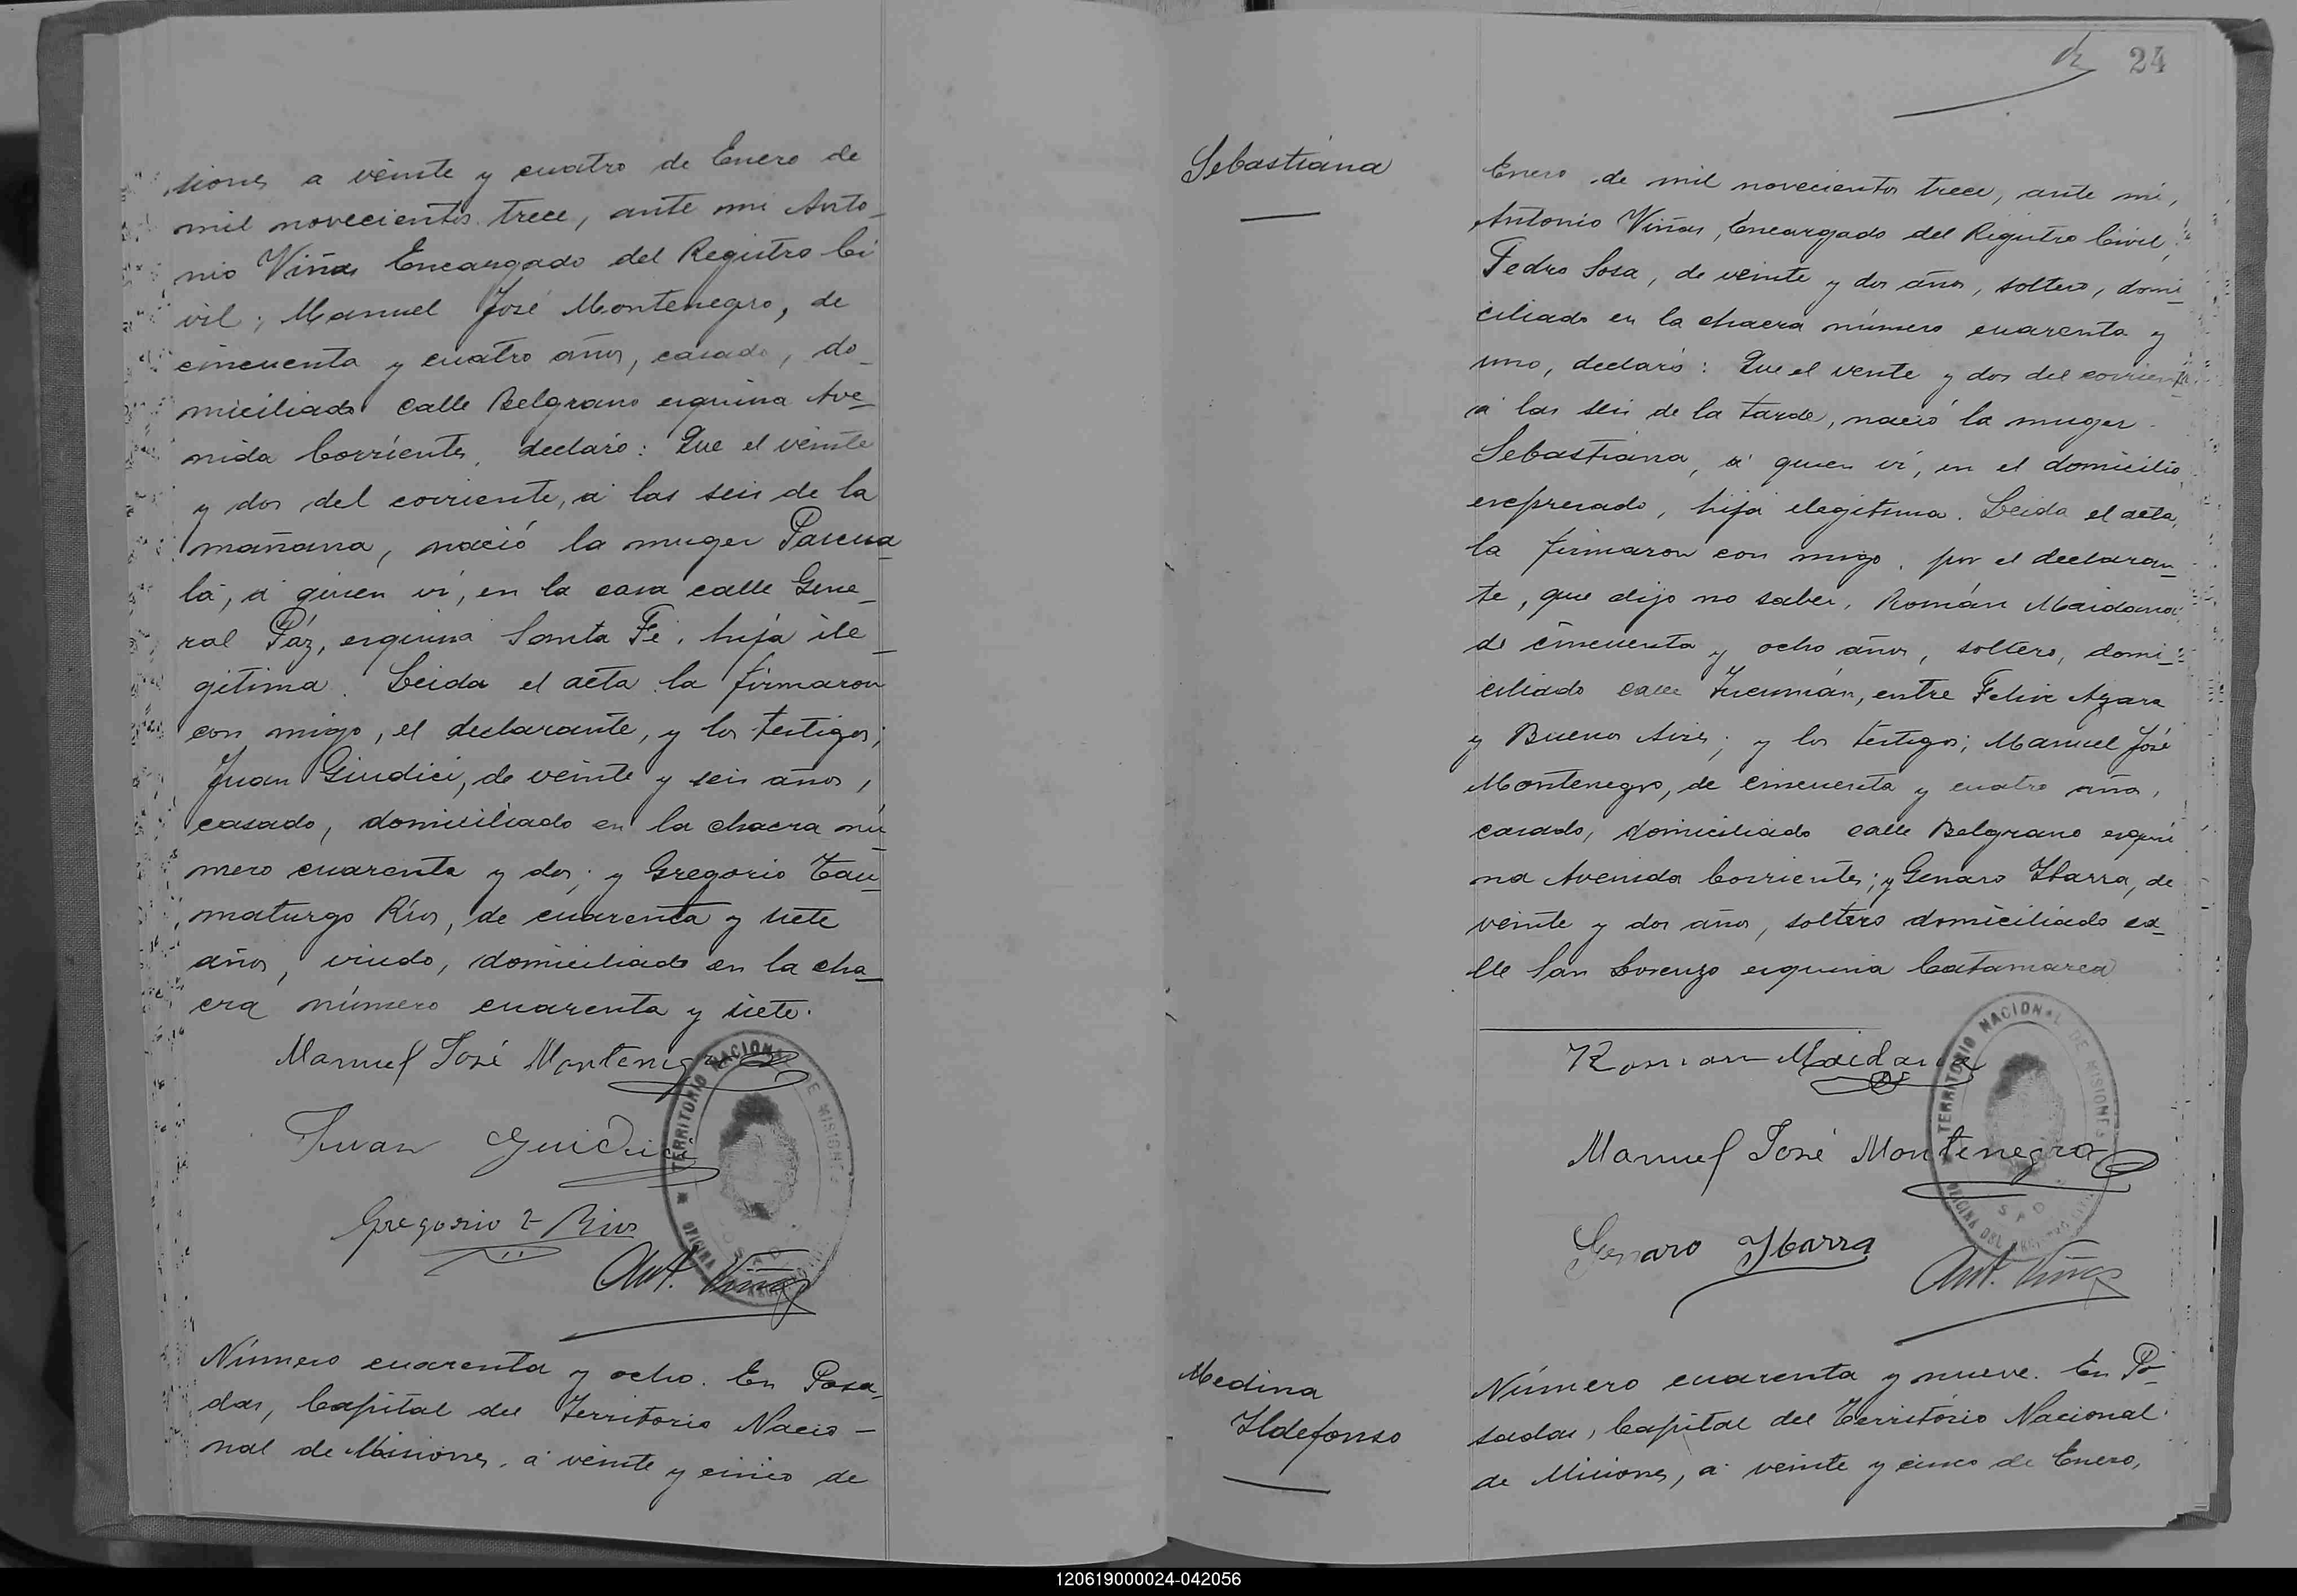 siones a veinte y cuatro de Enero de
mil novecientos trece, ante mi Anto-
nio Viñas Encargado del Registro Ci
vil; Manuel José Montenegro, de
cincuenta y cuatro años, casado, do-
miciliado calle Belgrano esquina Ave-
nida Corrientes, declaró: Que el veinte
y dos del corriente, á las seis de la
mañana, nació la muger Pascua
la, á quien ví, en la casa calle Gene-
ral Páz, esquina Santa Fé, hija ile-
gitima. Leida el acta la firmaron
con migo, el declarante, y los testigos;
Juan Giudici, de veinte y seis años,
casado, domiciliado en la chacra nú-
mero cuarenta y dos; y Gregorio Tau-
maturgo Ríos, de cuarenta y siete
años, viudo, domiciliado en la cha-
cra número cuarenta y siete.
Manuel José Montenegro
Juan Guidici
Gregorio T Rios
Ant. Viñas
TERRITORIO NACIONAL DE MISIONES
OFICINA
Número cuarenta y ocho. En Posa-
das, Capital del Territorio Nacio-
nal de Misiones, á veinte y cinco de
24
Sebastiana
Enero de mil novecientos trece, ante mi,
Antonio Viñas, Encargado del Registro Civil,
Pedro Sosa, de veinte y dos años, soltero, domi-
ciliado en la chacra número cuarenta y
uno, declaró: Que el vente y dos del corriente
á las seis de la tarde, nació la muger
Sebastiana, á quien ví, en el domicilio
escpresado, hija ilegitima. Leida el acta,
la firmaron con migo, por el declaran-
te, que dijo no saber, Román Maidana
de cincuenta y ocho años, soltero, domi-
ciliado calle Tucumán, entre Felix Azara
y Buenos Aires; y los testigos; Manuel José
Montenegro, de cincuenta y cuatro años,
casado, domiciliado calle Belgrano esqui
na Avenida Corrientes; y Genaro Ibarra, de
veinte y dos años, soltero domiciliado ca-
lle San Lorenzo esquina Catamarca
Roman Maidana
Manuel José Montenegro
Genaro Ybarra
Ant. Viñas
TERRITORIO NACIONAL DE MISIONES
OFICINA DEL REGISTRO CIVIL
Medina
Ildefonso
Número cuarenta y nueve. En Po-
sadas, Capital del Território Nacional
de Miciones, á veinte y cinco de Enero,
120619000024-042056